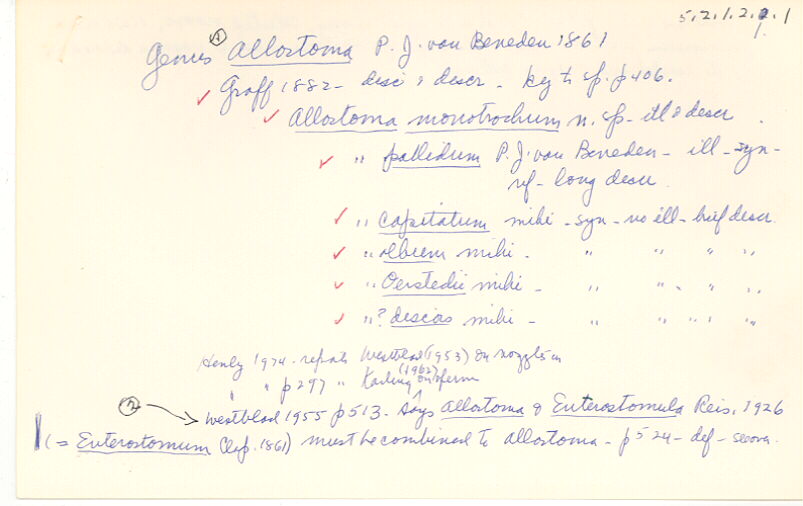 5.2.1.2.2.1
1.
Genus (1) Allostoma P. J. van Beneden 1861
✓ Graff 1882 - desc & descr - key to sp. p 406.
✓ Allostoma monotrochum n. sp - ill & descr.
✓ " pallidum P. J. van Beneden - ill - syn -
ref - long descr.
✓ " capitatum mihi - syn - no ill - brief descr.
✓ " album mihi - " " " "
✓ " Oerstedii mihi - " " " "
✓ "? discors mihi - " " " "
Henly 1974 - refs to Westblad (1953) on nozzles in
" " p 297 " Karling (1962) on sperm
(2) → Westblad 1955 p 513 - says Allostoma & Enterostomula Reis. 1926
(= Enterostomum Clap. 1861) must be combined to Allostoma - p 524 - def -